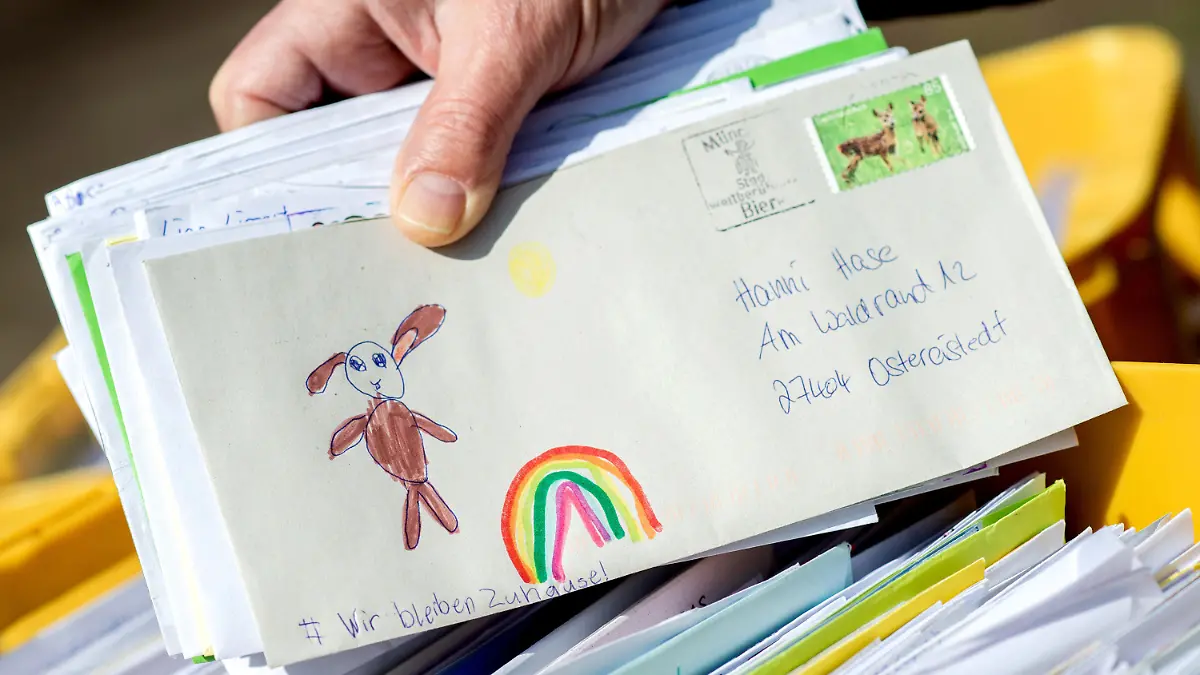 85
Bier
Hanni Hase
Am Waldrand 12
27404 Ostereistedt
# Wir bleiben Zuhause!